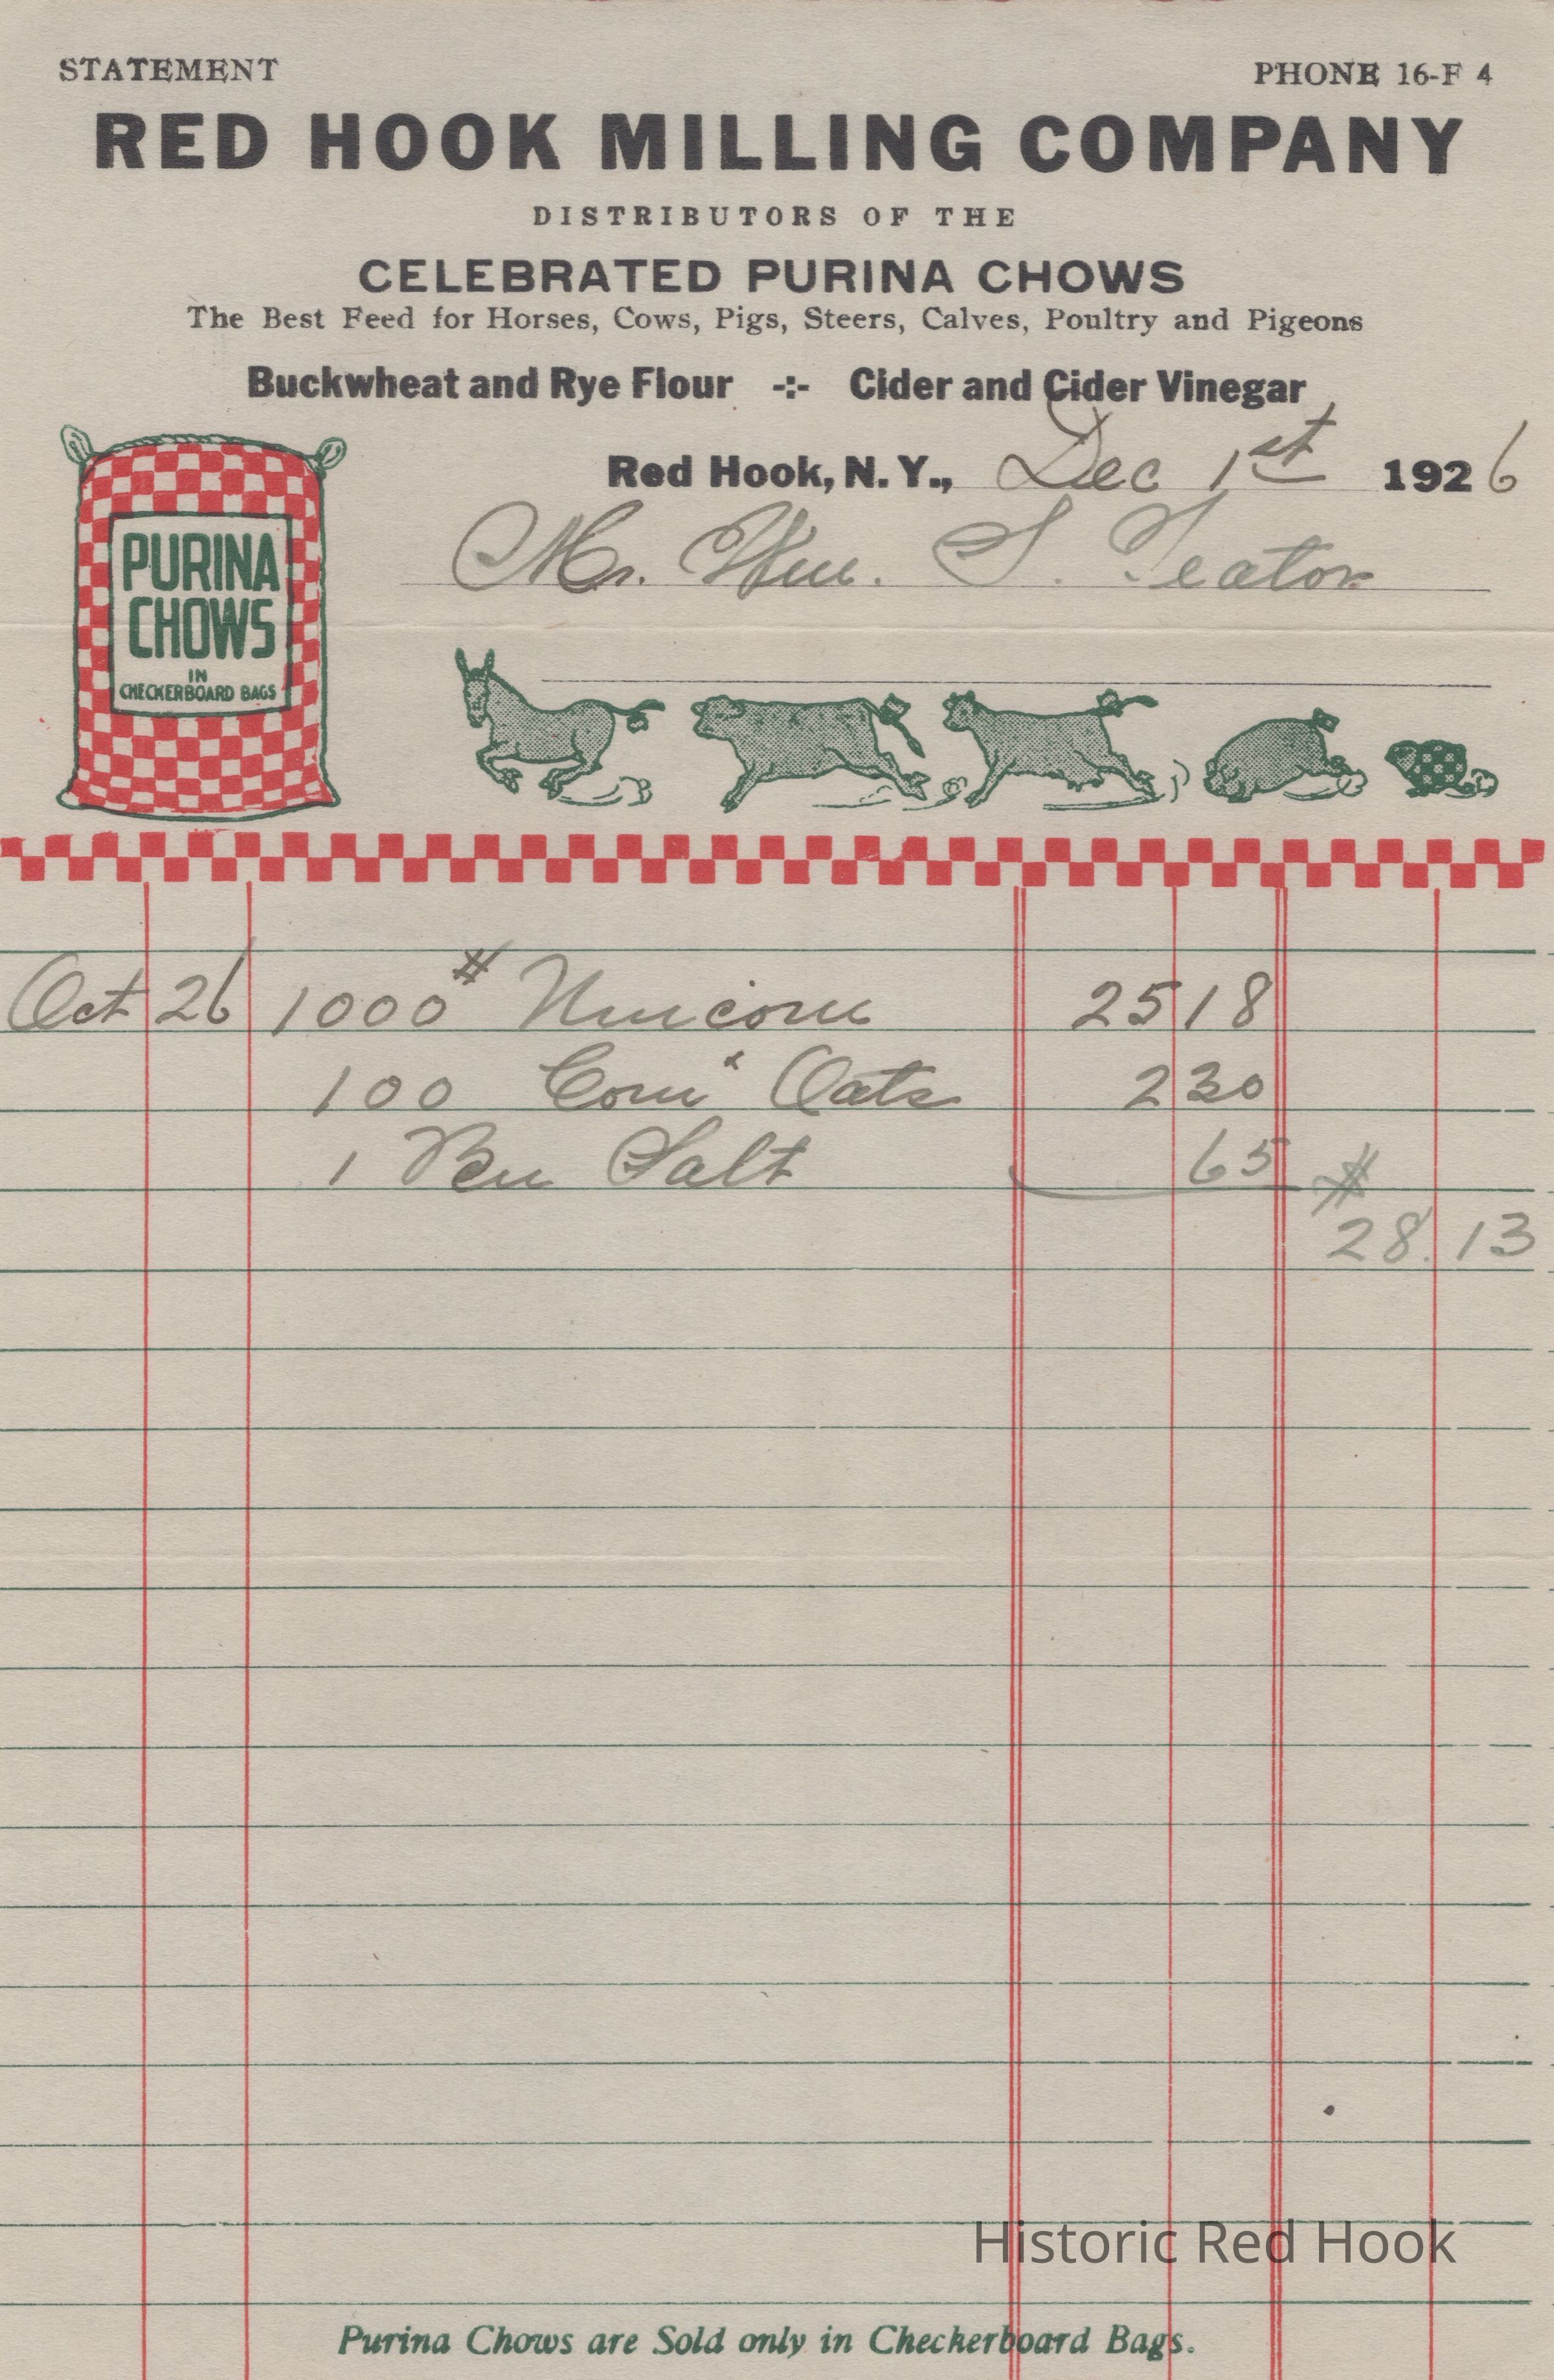 STATEMENT PHONE 16-F 4
RED HOOK MILLING COMPANY
DISTRIBUTORS OF THE
CELEBRATED PURINA CHOWS
The Best Feed for Horses, Cows, Pigs, Steers, Calves, Poultry and Pigeons
Buckwheat and Rye Flour -:- Cider and Cider Vinegar
Red Hook, N. Y., Dec 1st 1926
Mr. Wm. S. Teator
PURINA
CHOWS
IN
CHECKERBOARD BAGS
Oct 26 1000# Unicorn 25 18
100 Corn & Oats 2 30
1 Bu Salt 65 $
28.13
Historic Red Hook
Purina Chows are Sold only in Checkerboard Bags.